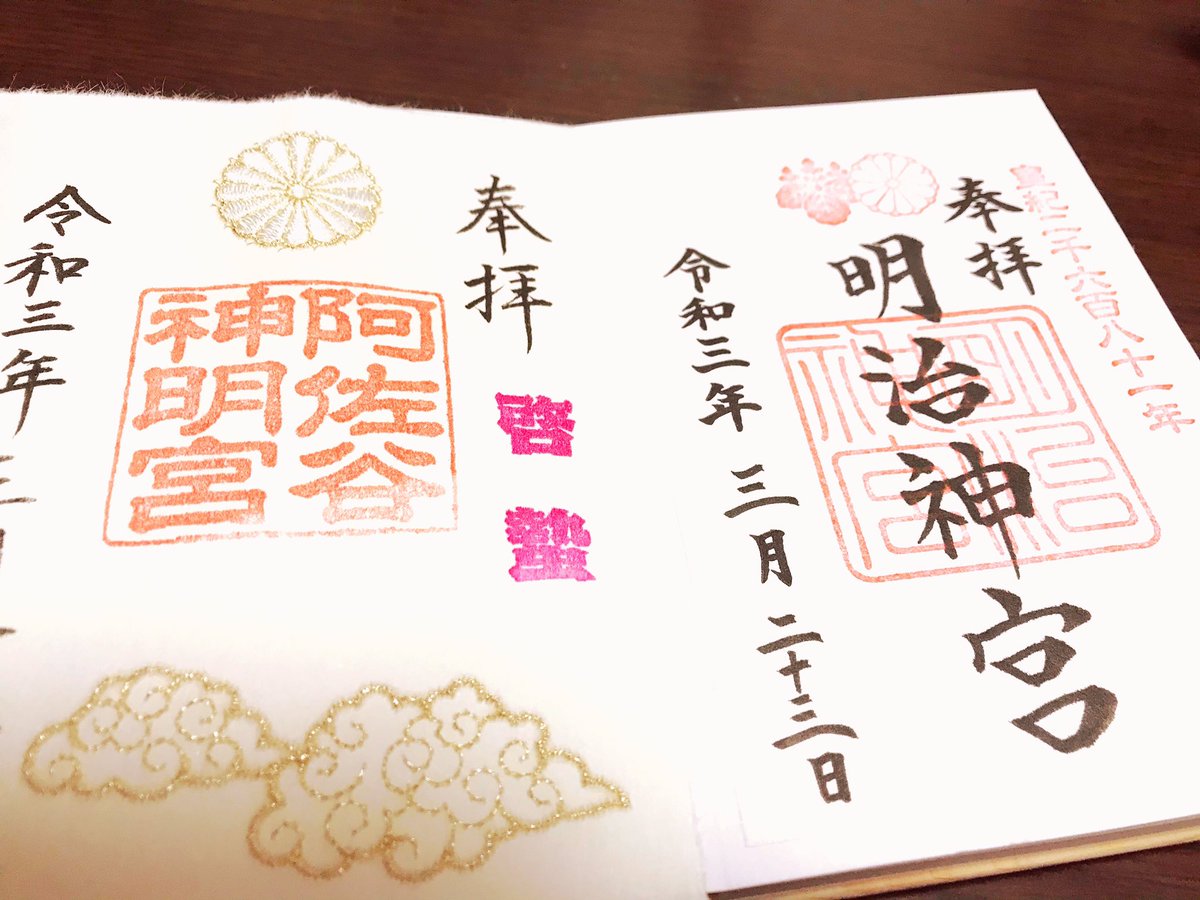 皇紀二千六百八十一年
奉拝
明治神宮
令和三年 三月 二十三日
奉拝
啓蟄
阿佐谷
神明宮
令和三年 三月